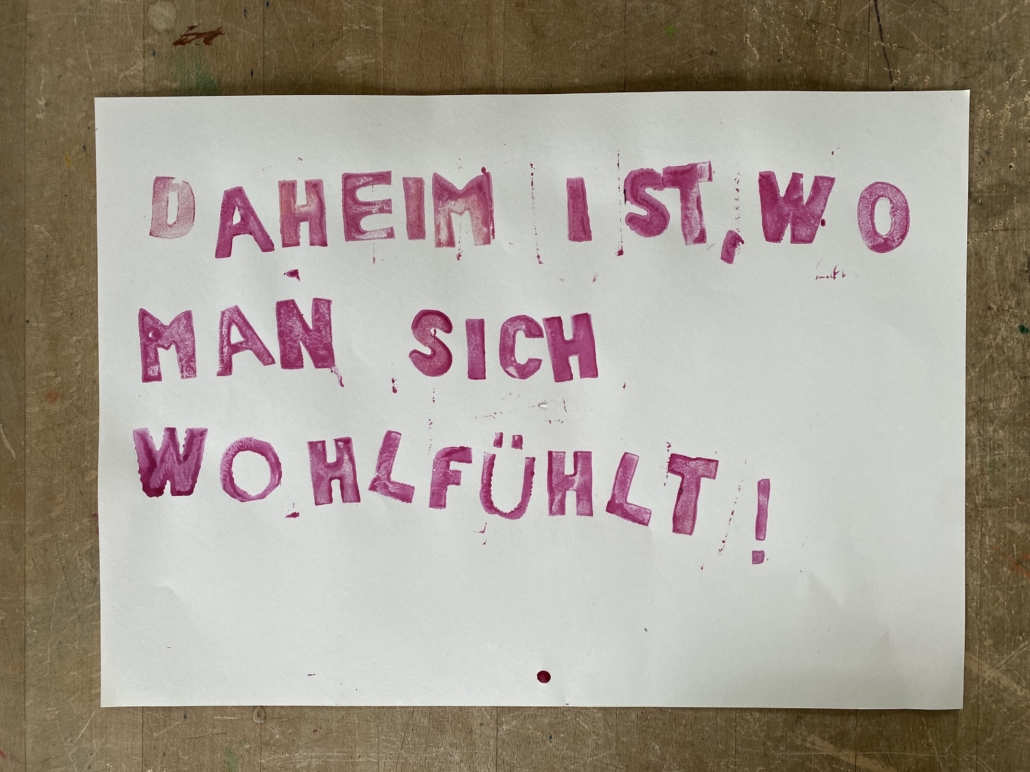 DAHEIM IST, WO
MAN SICH
WOHLFÜHLT!